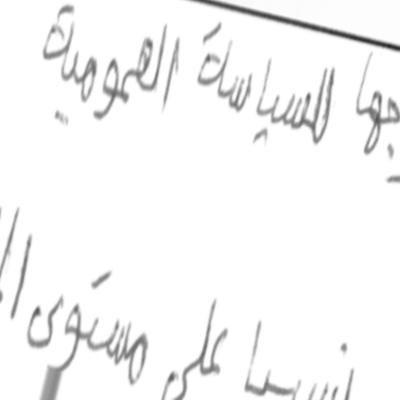 جها للسياسة العمومية
نسيا على مستوى